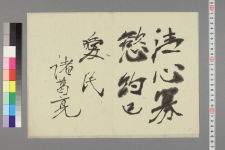 清心寡
慾約己
愛民
諸葛亮